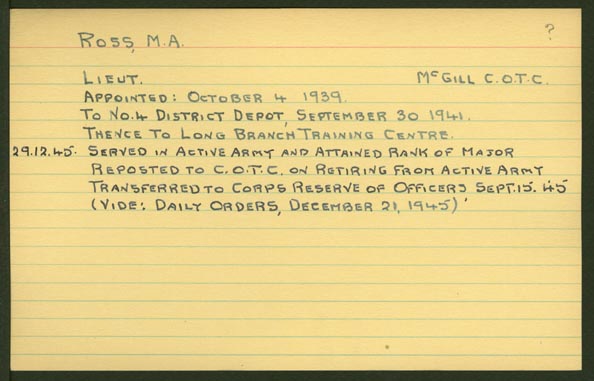 ?
ROSS, M.A.
LIEUT. McGILL C.O.T.C.
APPOINTED: OCTOBER 4 1939.
TO NO.4 DISTRICT DEPOT, SEPTEMBER 30 1941.
THENCE TO LONG BRANCH TRAINING CENTRE.
29.12.45. SERVED IN ACTIVE ARMY AND ATTAINED RANK OF MAJOR
REPOSTED TO C.O.T.C. ON RETIRING FROM ACTIVE ARMY
TRANSFERRED TO CORPS RESERVE OF OFFICERS SEPT.15.45
(VIDE: DAILY ORDERS, DECEMBER 21, 1945)'